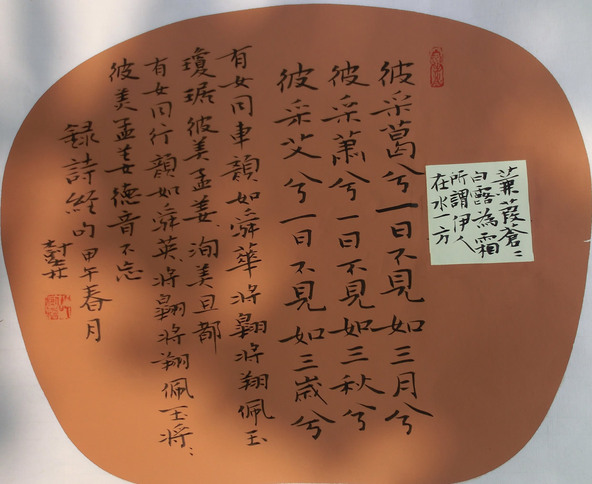 蒹葭蒼〻
白露為霜
所謂伊人
在水一方
彼采葛兮一日不見如三月兮
彼采蕭兮一日不見如三秋兮
彼采艾兮一日不見如三歲兮
有女同車顏如舜華將翱將翔佩玉
瓊琚彼美孟姜洵美且都
有女同行顏如舜英將翱將翔佩玉將〻
彼美孟姜德音不忘
錄詩經句甲午春月